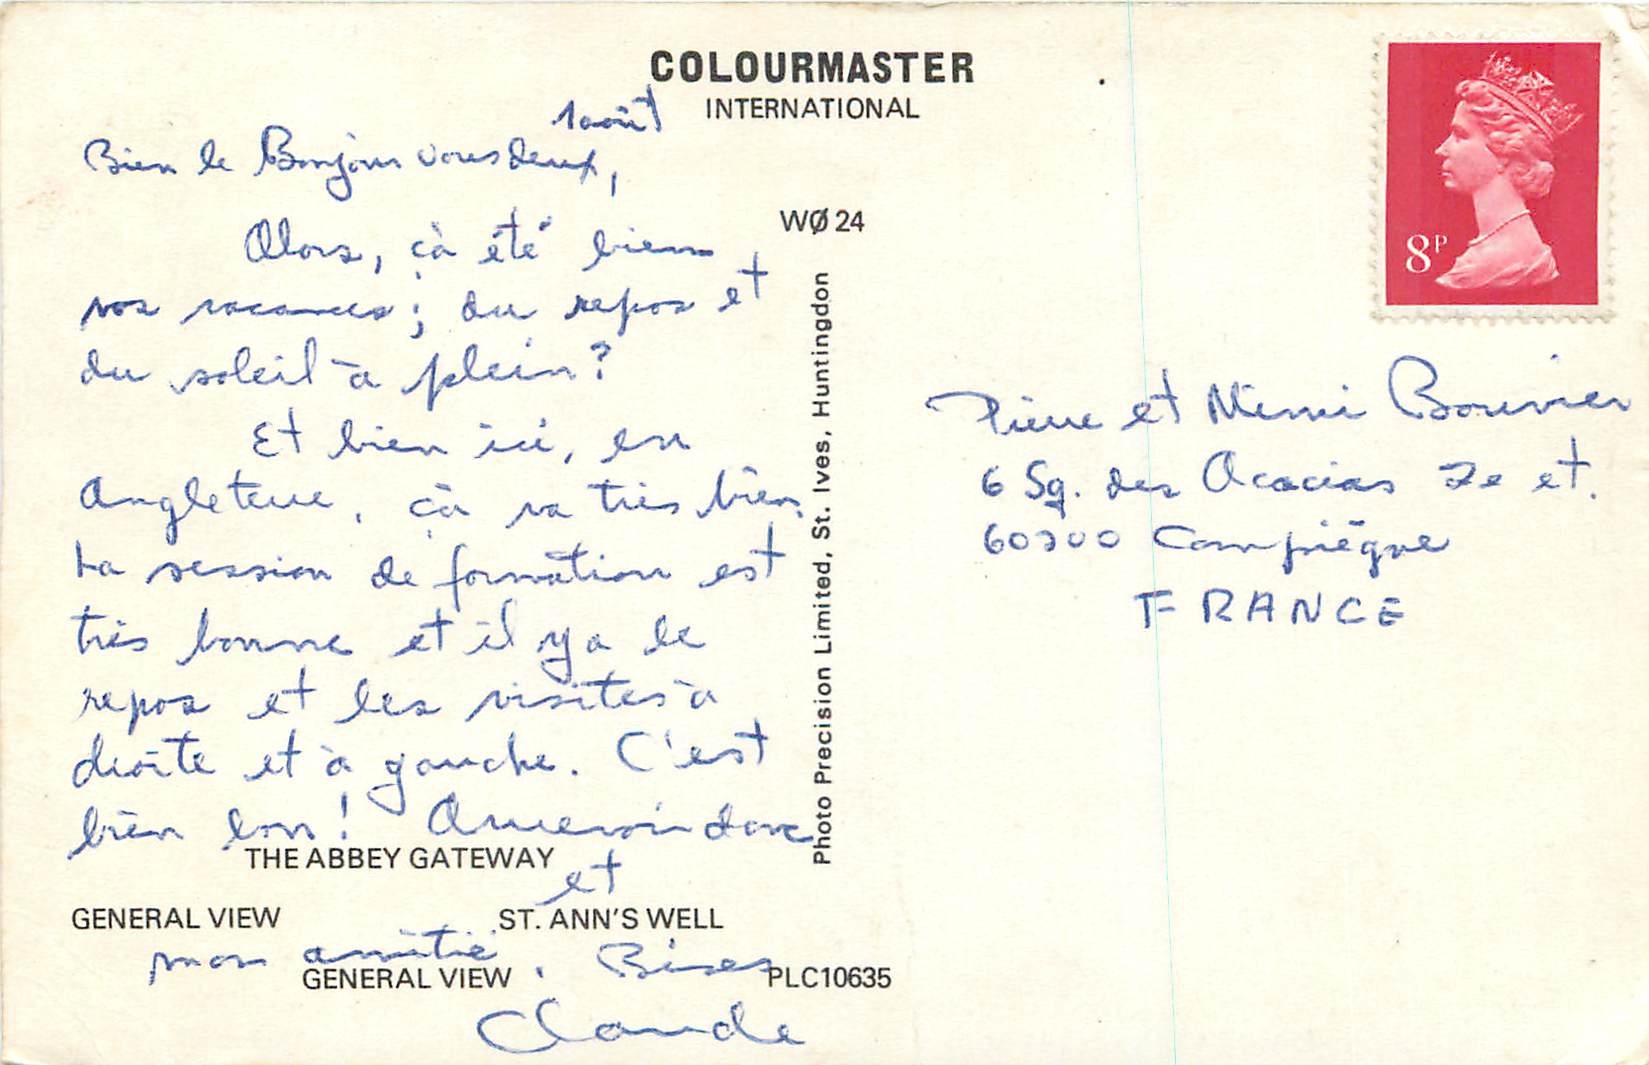 COLOURMASTER
INTERNATIONAL
1 août
Bien le Bonjour vous deux,
WØ 24
Alors, çà été bien
vos vacances; du repos et
du soleil à plein?
Et bien ici, en
Angleterre, çà va très bien.
La session de formation est
très bonne et il y a le
repos et les visites à
droite et à gauche. C'est
bien bon! Au revoir donc
et
mon amitié. Bises
Claude
THE ABBEY GATEWAY
GENERAL VIEW
ST. ANN'S WELL
GENERAL VIEW
PLC10635
Photo Precision Limited, St. Ives, Huntingdon
8P
Pierre et Mimi Bouvier
6 Sq. des Acacias 7e et.
60200 Compiègne
FRANCE